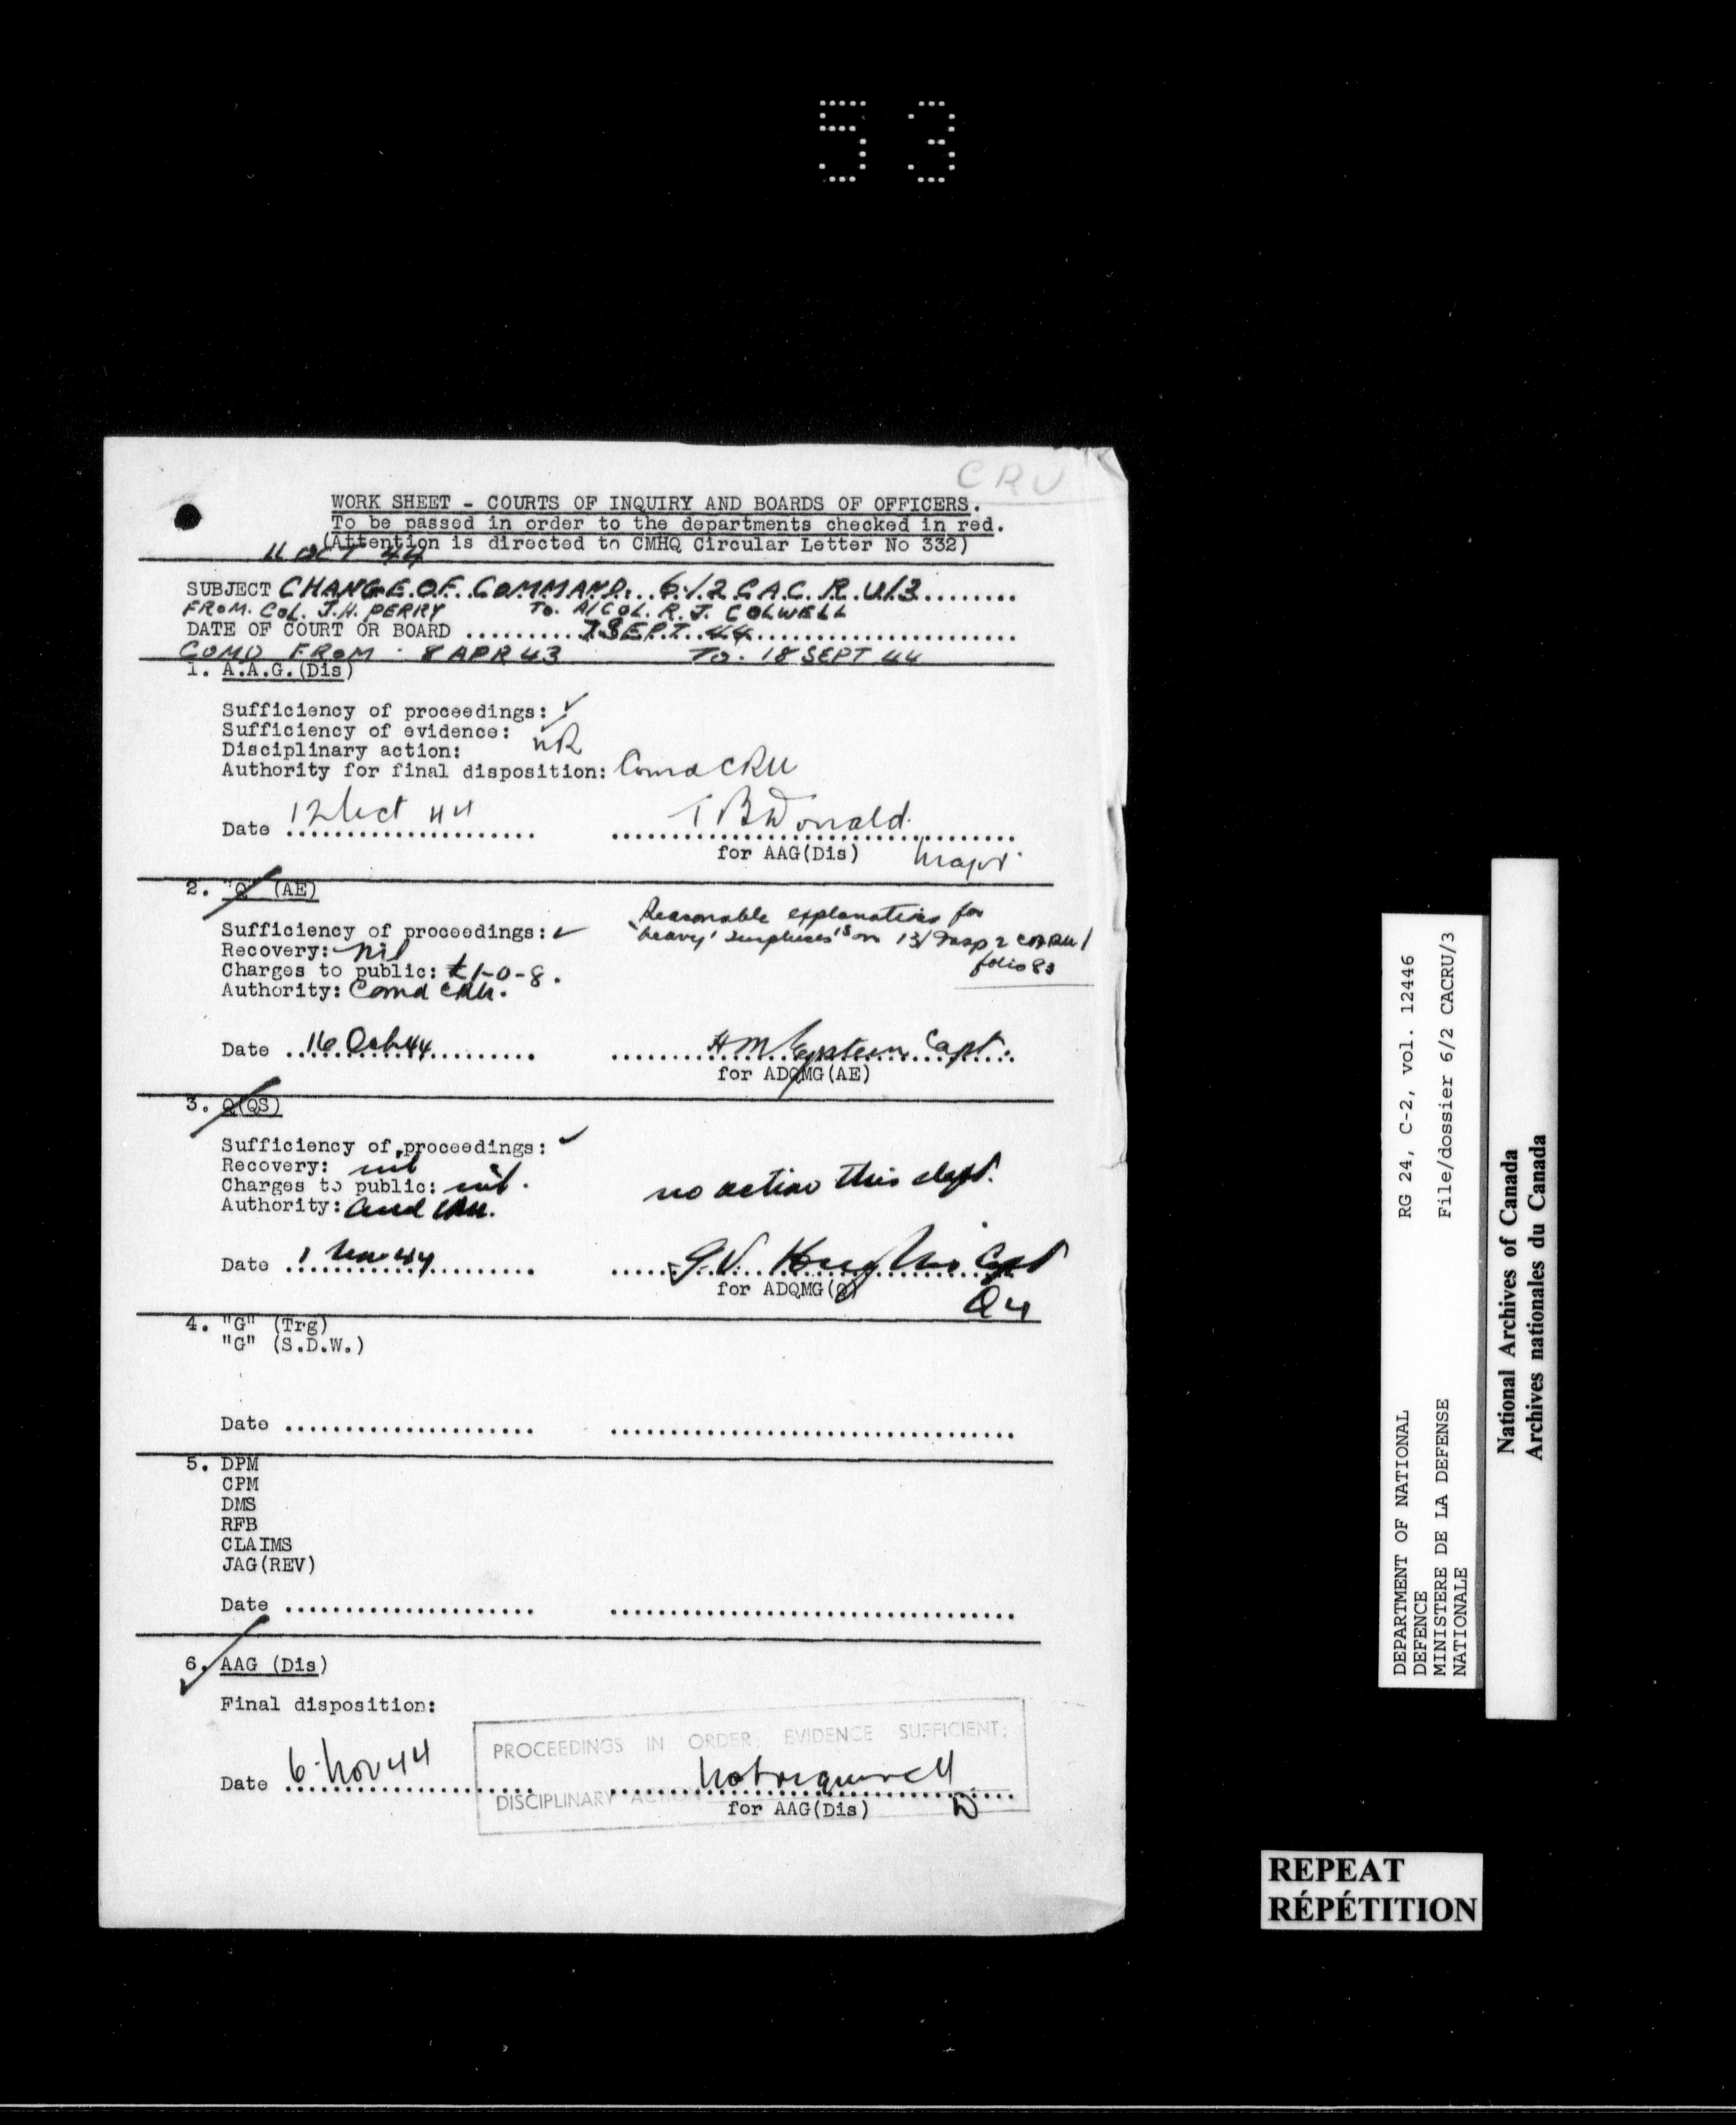 53
CRU
WORK SHEET - COURTS OF INQUIRY AND BOARDS OF OFFICERS.
To be passed in order to the departments checked in red.
(Attention is directed to CMHQ Circular Letter No 332)
11 OCT 44
SUBJECT CHANGE OF COMMAND. 6/2 C.A.C.R.U/3
FROM. COL. J.H. PERRY TO. A/COL. R. J. COLWELL
DATE OF COURT OR BOARD 7 SEPT. 44
COMD FROM 8 APR 43 TO. 18 SEPT 44
1. A.A.G.(Dis)
Sufficiency of proceedings: ✓
Sufficiency of evidence: ✓
Disciplinary action: NR
Authority for final disposition: Comd CRU
Date 12 Oct 44 T B Donald
for AAG(Dis) Major
2. "Q" (AE)
Reasonable explanations for
Sufficiency of proceedings: ✓ 'heavy' surpluses on
Recovery: nil
folio 83
Charges to public: £1-0-8.
Authority: Comd CRU.
Date 16 Oct 44 H M Epstein Capt.
for ADQMG(AE)
3. Q(QS)
Sufficiency of proceedings: ✓
Recovery: nil
Charges to public: nil. no action this dept.
Authority: Comd CRU.
Date 1 Nov 44 G.V. Capt
for ADQMG(Q)
Q4
4. "G" (Trg)
"G" (S.D.W.)
Date
5. DPM
CPM
DMS
RFB
CLAIMS
JAG(REV)
Date
6. AAG (Dis)
Final disposition:
PROCEEDINGS IN ORDER; EVIDENCE SUFFICIENT;
Date 6 Nov 44 not required
DISCIPLINARY ACTION
for AAG(Dis) D
DEPARTMENT OF NATIONAL RG 24, C-2, vol. 12446
DEFENCE
MINISTERE DE LA DEFENSE File/dossier 6/2 CACRU/3
NATIONALE
National Archives of Canada
Archives nationales du Canada
REPEAT
RÉPÉTITION